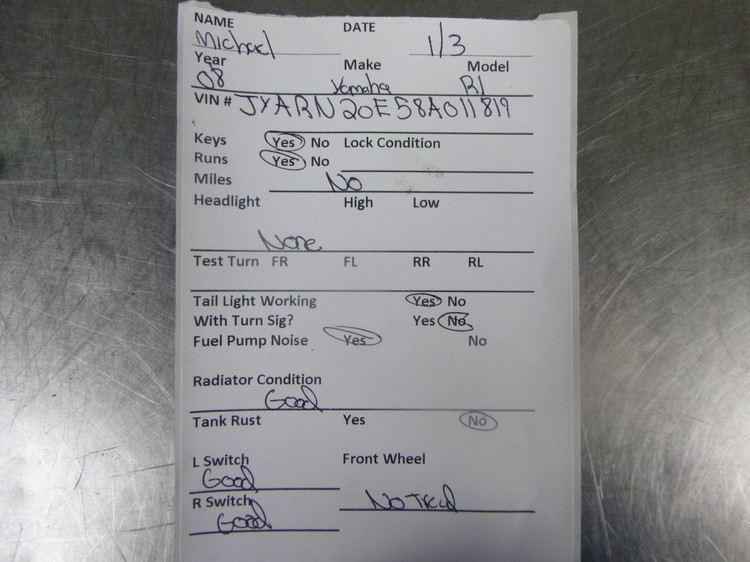 NAME Michael DATE 1/3
Year 08 Make Yamaha Model R1
VIN # JYARN20E58A011819
Keys Yes No Lock Condition
Runs Yes No
Miles No
Headlight High Low
None
Test Turn FR FL RR RL
Tail Light Working Yes No
With Turn Sig? Yes No
Fuel Pump Noise Yes No
Radiator Condition
Good
Tank Rust Yes No
L Switch Front Wheel
Good
R Switch No Tread
Good